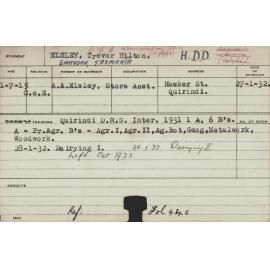 STUDENT ELSLEY, Trevor Hilton. H.D.D.
TASMANIA
AGE RELIGION PARENT OR GUARDIAN OCCUPATION ADDRESS DATE OF ENTRANCE
1-7-15 C.o.E. A.A.Elsley, Store Asst. Hawker St. Quirindi. 27-1-32.
Quirindi D.R.S. Inter. 1931 1 A, 6 B's.
A - Pr.Agr. B's - Agr.I, Agr.II, Ag.Bot, Geog, Metalwork,
Woodwork.
28-1-32. Dairying I. 20.1.33. Dairying II
Left Oct 1933.
RESULTS
Ref Fol.